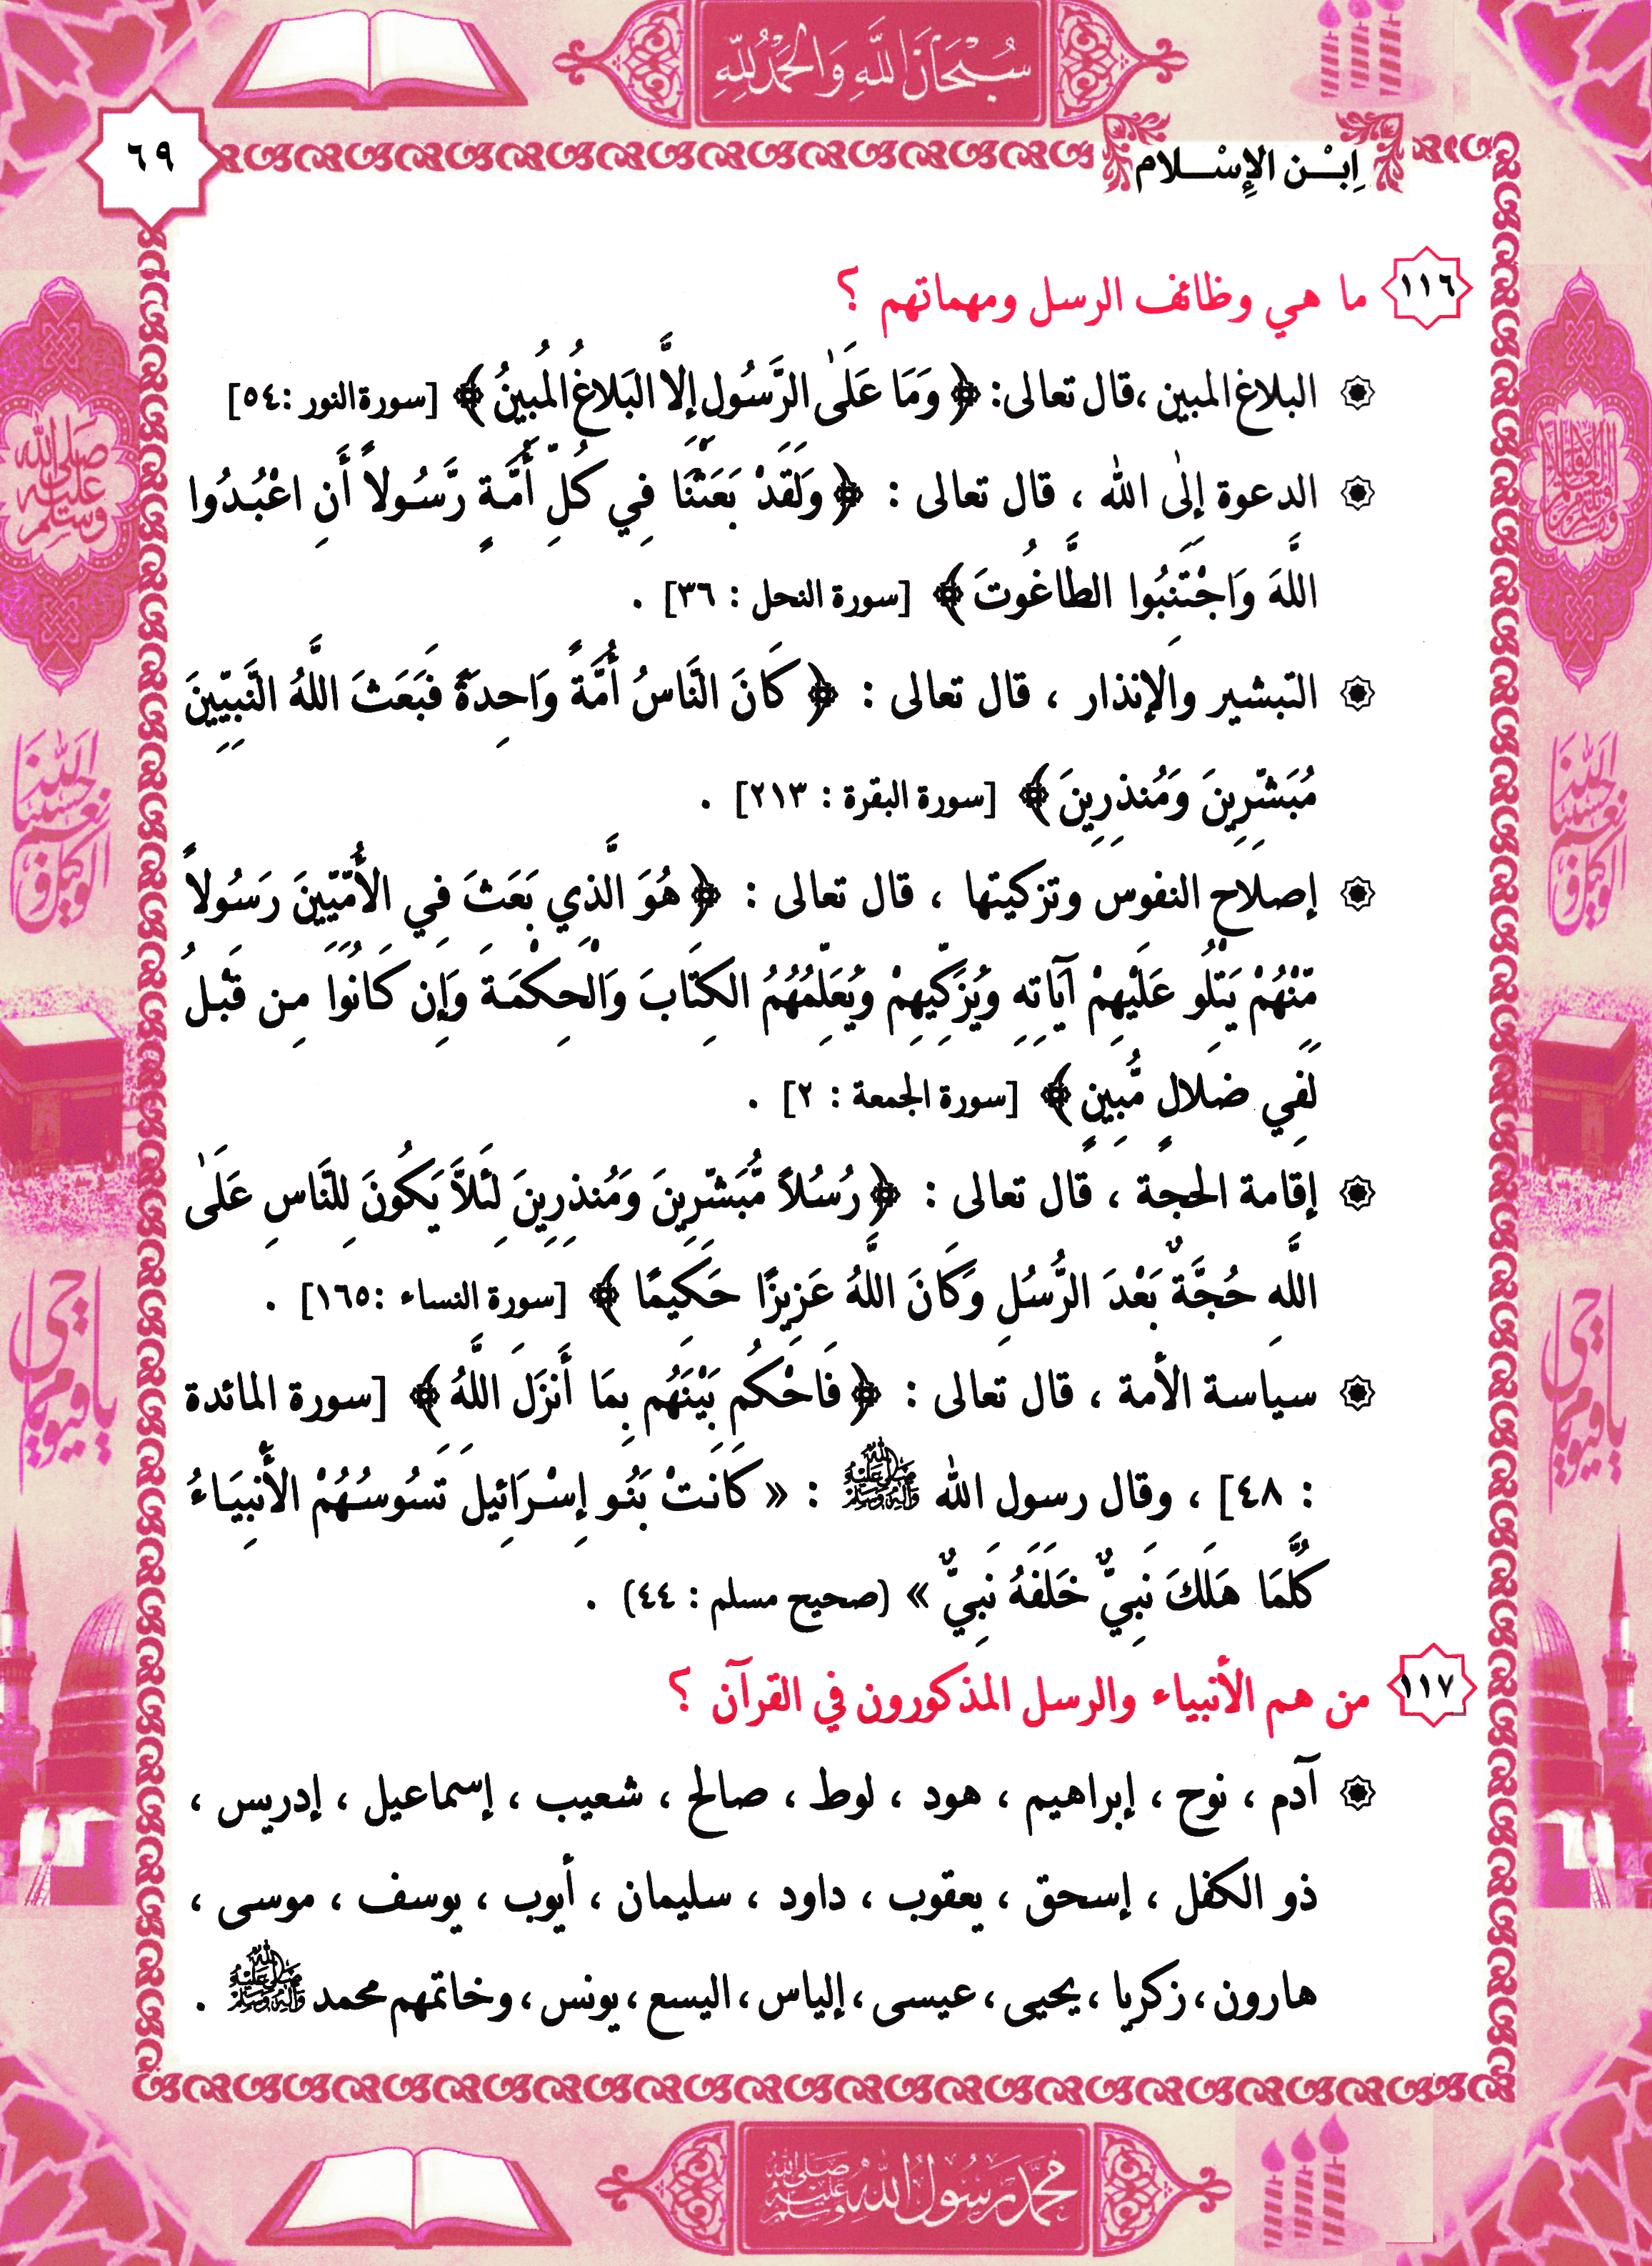 سُبْحَانَ اللَّهِ وَالْحَمْدُ لِلَّهِ
٦٩
اِبْـــن الإِسْـــلام
١١٦ ما هي وظائف الرسل ومهماتهم ؟
البلاغ المبين ، قال تعالى: ﴿ وَمَا عَلَى الرَّسُولِ إِلاَّ البَلاغُ المُبِينُ ﴾ [سورة النور :٥٤]
الدعوة إلى الله ، قال تعالى : ﴿ وَلَقَدْ بَعَثْنَا فِي كُلِّ أُمَّةٍ رَّسُولاً أَنِ اعْبُدُوا
اللَّهَ وَاجْتَنِبُوا الطَّاغُوتَ ﴾ [سورة النحل : ٣٦] .
التبشير والإنذار ، قال تعالى : ﴿ كَانَ النَّاسُ أُمَّةً وَاحِدَةً فَبَعَثَ اللَّهُ النَّبِيِّينَ
مُبَشِّرِينَ وَمُنذِرِينَ ﴾ [سورة البقرة : ٢١٣] .
إصلاح النفوس وتزكيتها ، قال تعالى : ﴿ هُوَ الَّذِي بَعَثَ فِي الأُمِّيِّينَ رَسُولاً
مِّنْهُمْ يَتْلُو عَلَيْهِمْ آيَاتِهِ وَيُزَكِّيهِمْ وَيُعَلِّمُهُمُ الكِتَابَ وَالْحِكْمَةَ وَإِن كَانُوا مِن قَبْلُ
لَفِي ضَلالٍ مُّبِينٍ ﴾ [سورة الجمعة : ٢] .
إقامة الحجة ، قال تعالى : ﴿ رُسُلاً مُّبَشِّرِينَ وَمُنذِرِينَ لِئَلاَّ يَكُونَ لِلنَّاسِ عَلَى
اللَّهِ حُجَّةٌ بَعْدَ الرُّسُلِ وَكَانَ اللَّهُ عَزِيزًا حَكِيمًا ﴾ [سورة النساء :١٦٥] .
سياسة الأمة ، قال تعالى : ﴿ فَاحْكُم بَيْنَهُم بِمَا أَنزَلَ اللَّهُ ﴾ [سورة المائدة
: ٤٨] ، وقال رسول الله ﷺ : « كَانَتْ بَنُو إِسْرَائِيلَ تَسُوسُهُمْ الأَنبِيَاءُ
كُلَّمَا هَلَكَ نَبِيٌّ خَلَفَهُ نَبِيٌّ » (صحيح مسلم : ٤٤) .
١١٧ من هم الأنبياء والرسل المذكورون في القرآن ؟
آدم ، نوح ، إبراهيم ، هود ، لوط ، صالح ، شعيب ، إسماعيل ، إدريس ،
ذو الكفل ، إسحق ، يعقوب ، داود ، سليمان ، أيوب ، يوسف ، موسى ،
هارون ، زكريا ، يحيى ، عيسى ، إلياس ، اليسع ، يونس ، وخاتمهم محمد ﷺ .
محمد رسول الله صلى الله عليه وسلم